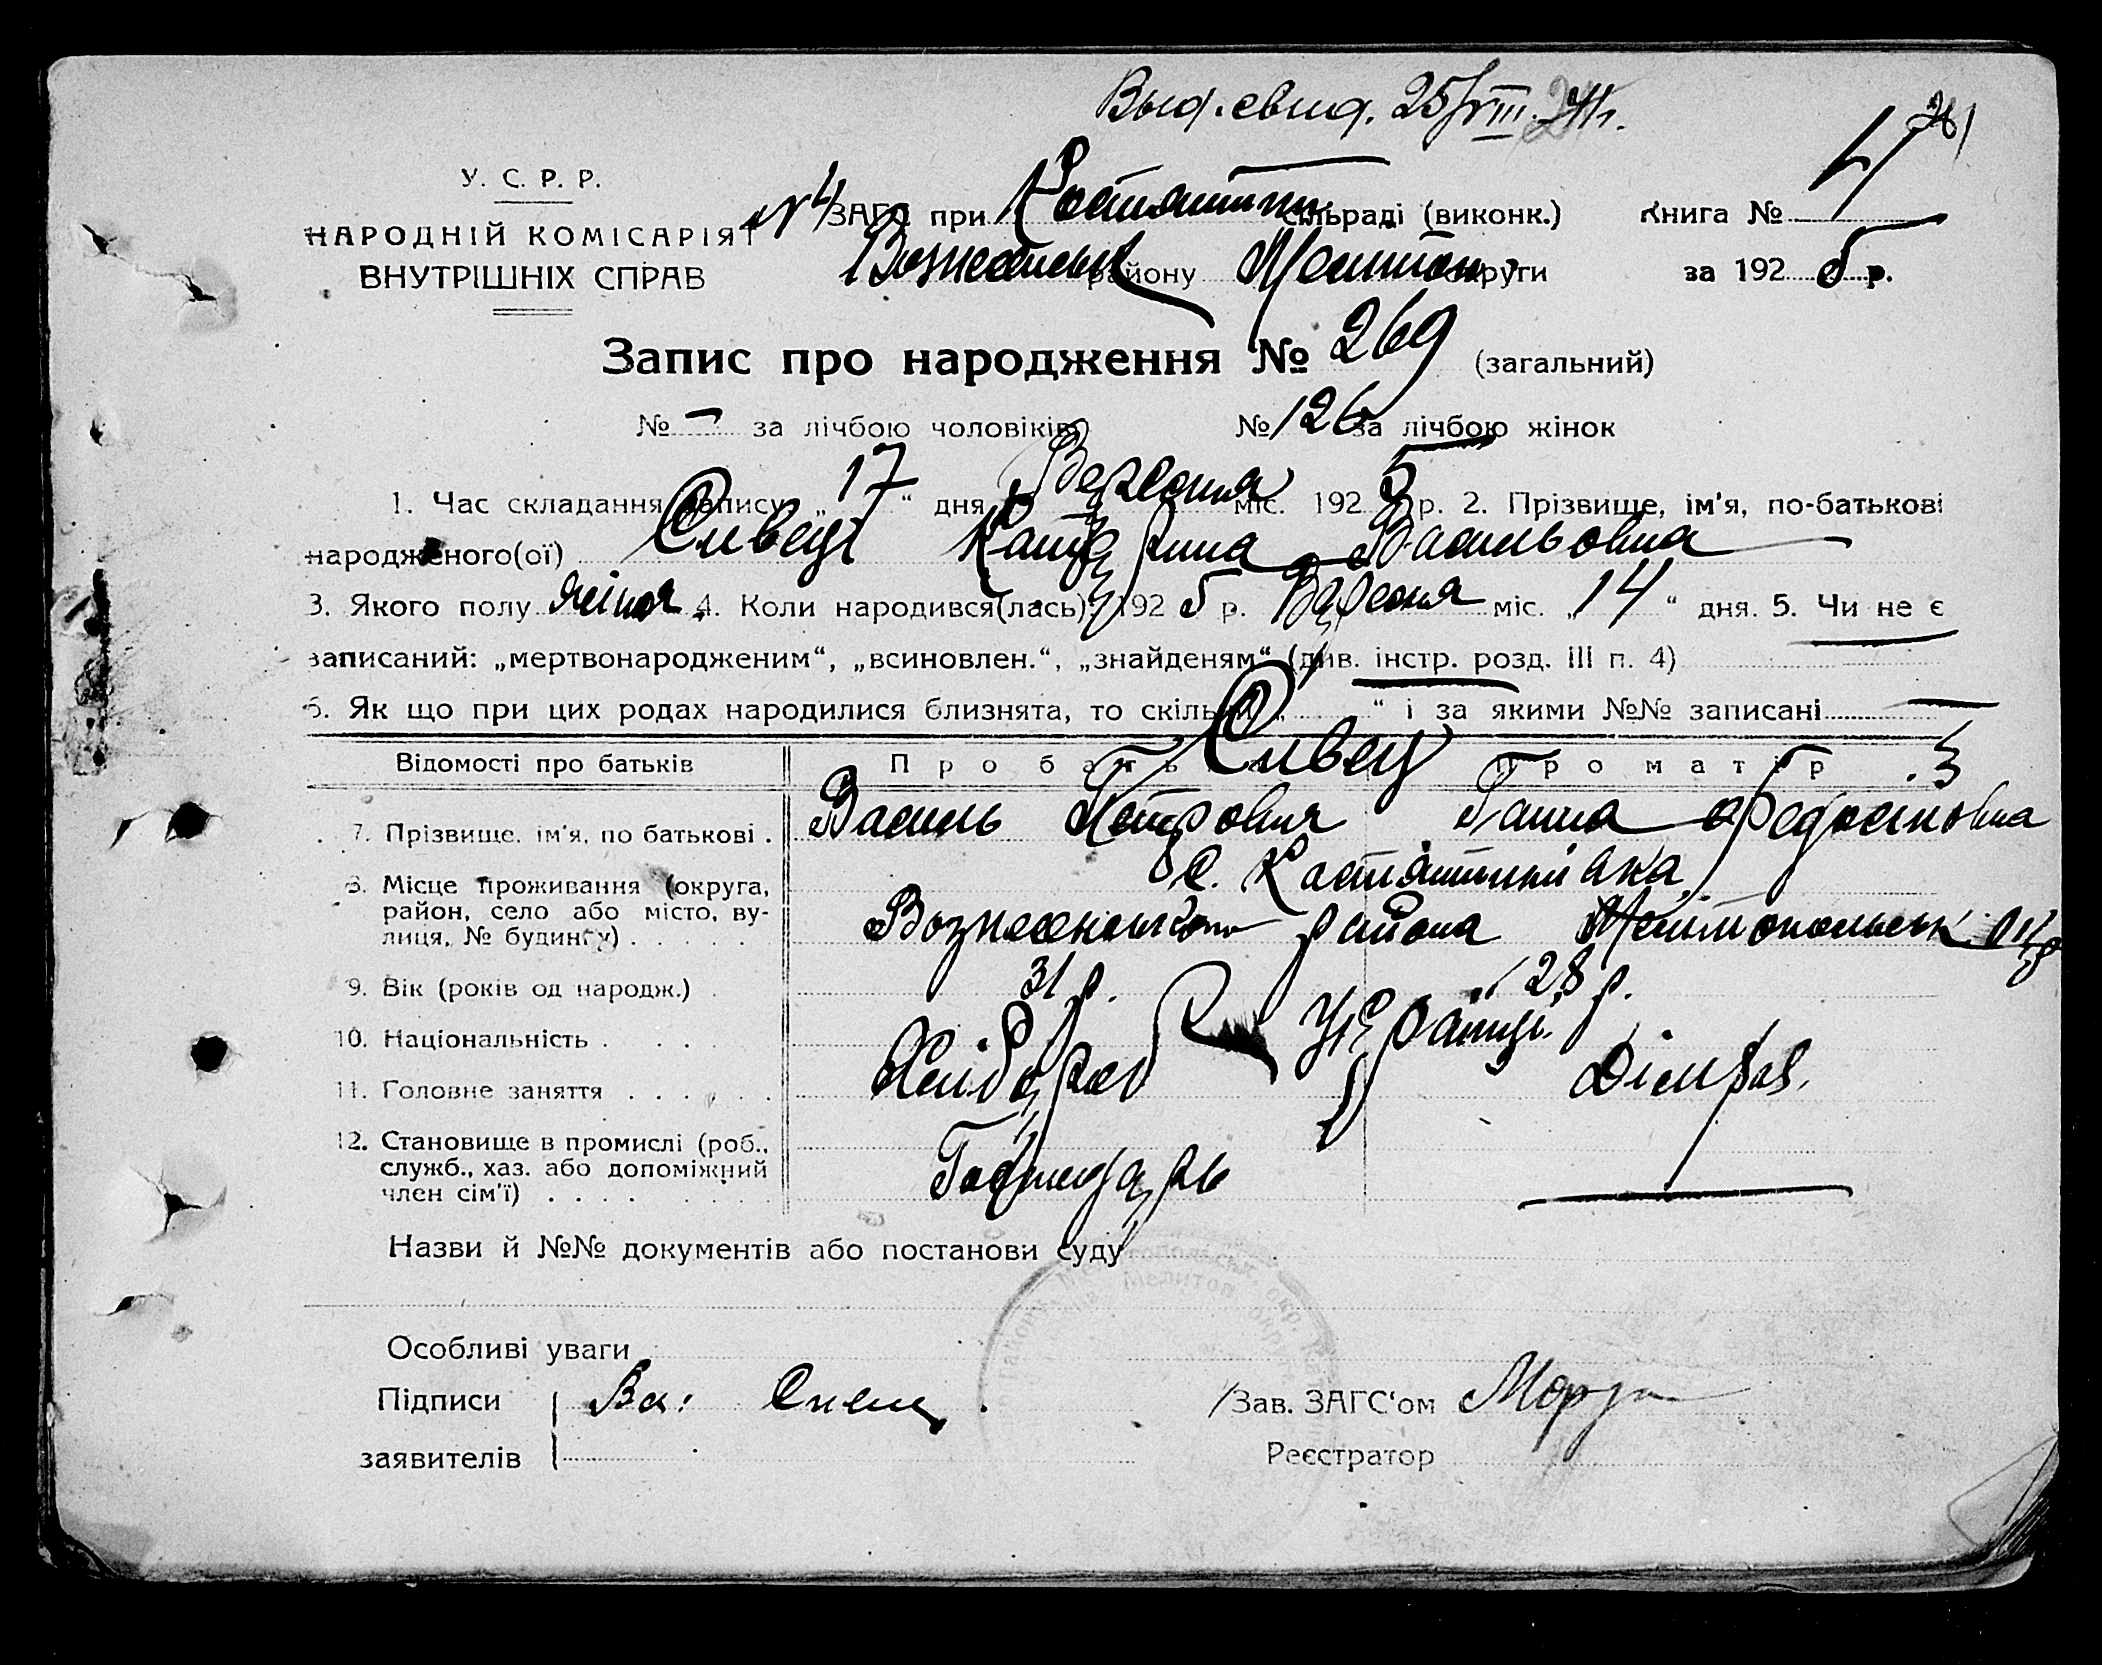 Выд. свид. 25/VIII
У. С. Р. Р.
НАРОДНІЙ КОМІСАРІЯТ
ВНУТРІШНІХ СПРАВ
ЗАГС при Костянтин сільраді (виконк.) Книга № 4
Вознесенськ району Мелітоп округи за 1925 р.
Запис про народження № 269 (загальний)
№ — за лічбою чоловіків № 126 за лічбою жінок
1. Час складання запису „ 17 “ дня Вересня міс. 1925 р. 2. Прізвище, ім'я, по-батькові
народженого(ої) Сивець Катерина Васильовна
3. Якого полу жіноя 4. Коли народився(лась) 1925 р. Вересня міс. „ 14 “ дня. 5. Чи не є
записаний: „мертвонародженим“, „всиновлен.“, „знайденям“ (див. інстр. розд. III п. 4) —
6. Як що при цих родах народилися близнята, то скільки „ “ і за якими №№ записані —
Відомості про батьків Про батька Про матір
Сивец
7. Прізвище, ім'я, по батькові . Василь Петровия Ганна Федосиовна
8. Місце проживання (округа, район, село або місто, вулиця, № будинку) . . . . . с. Костянтинівка
Вознесенського района Мелітопольськ. окр
9. Вік (років од народж.) . 31 р. 28 р.
10. Національність . . . . Українці
11. Головне заняття . . . . . . Хлібороб
12. Становище в промислі (роб., служб., хаз. або допоміжний член сім'ї) . . . . Господарь —
Назви й №№ документів або постанови суду
Особливі уваги
Підписи Ва: /Зав. ЗАГС'ом
заявителів Реєстратор